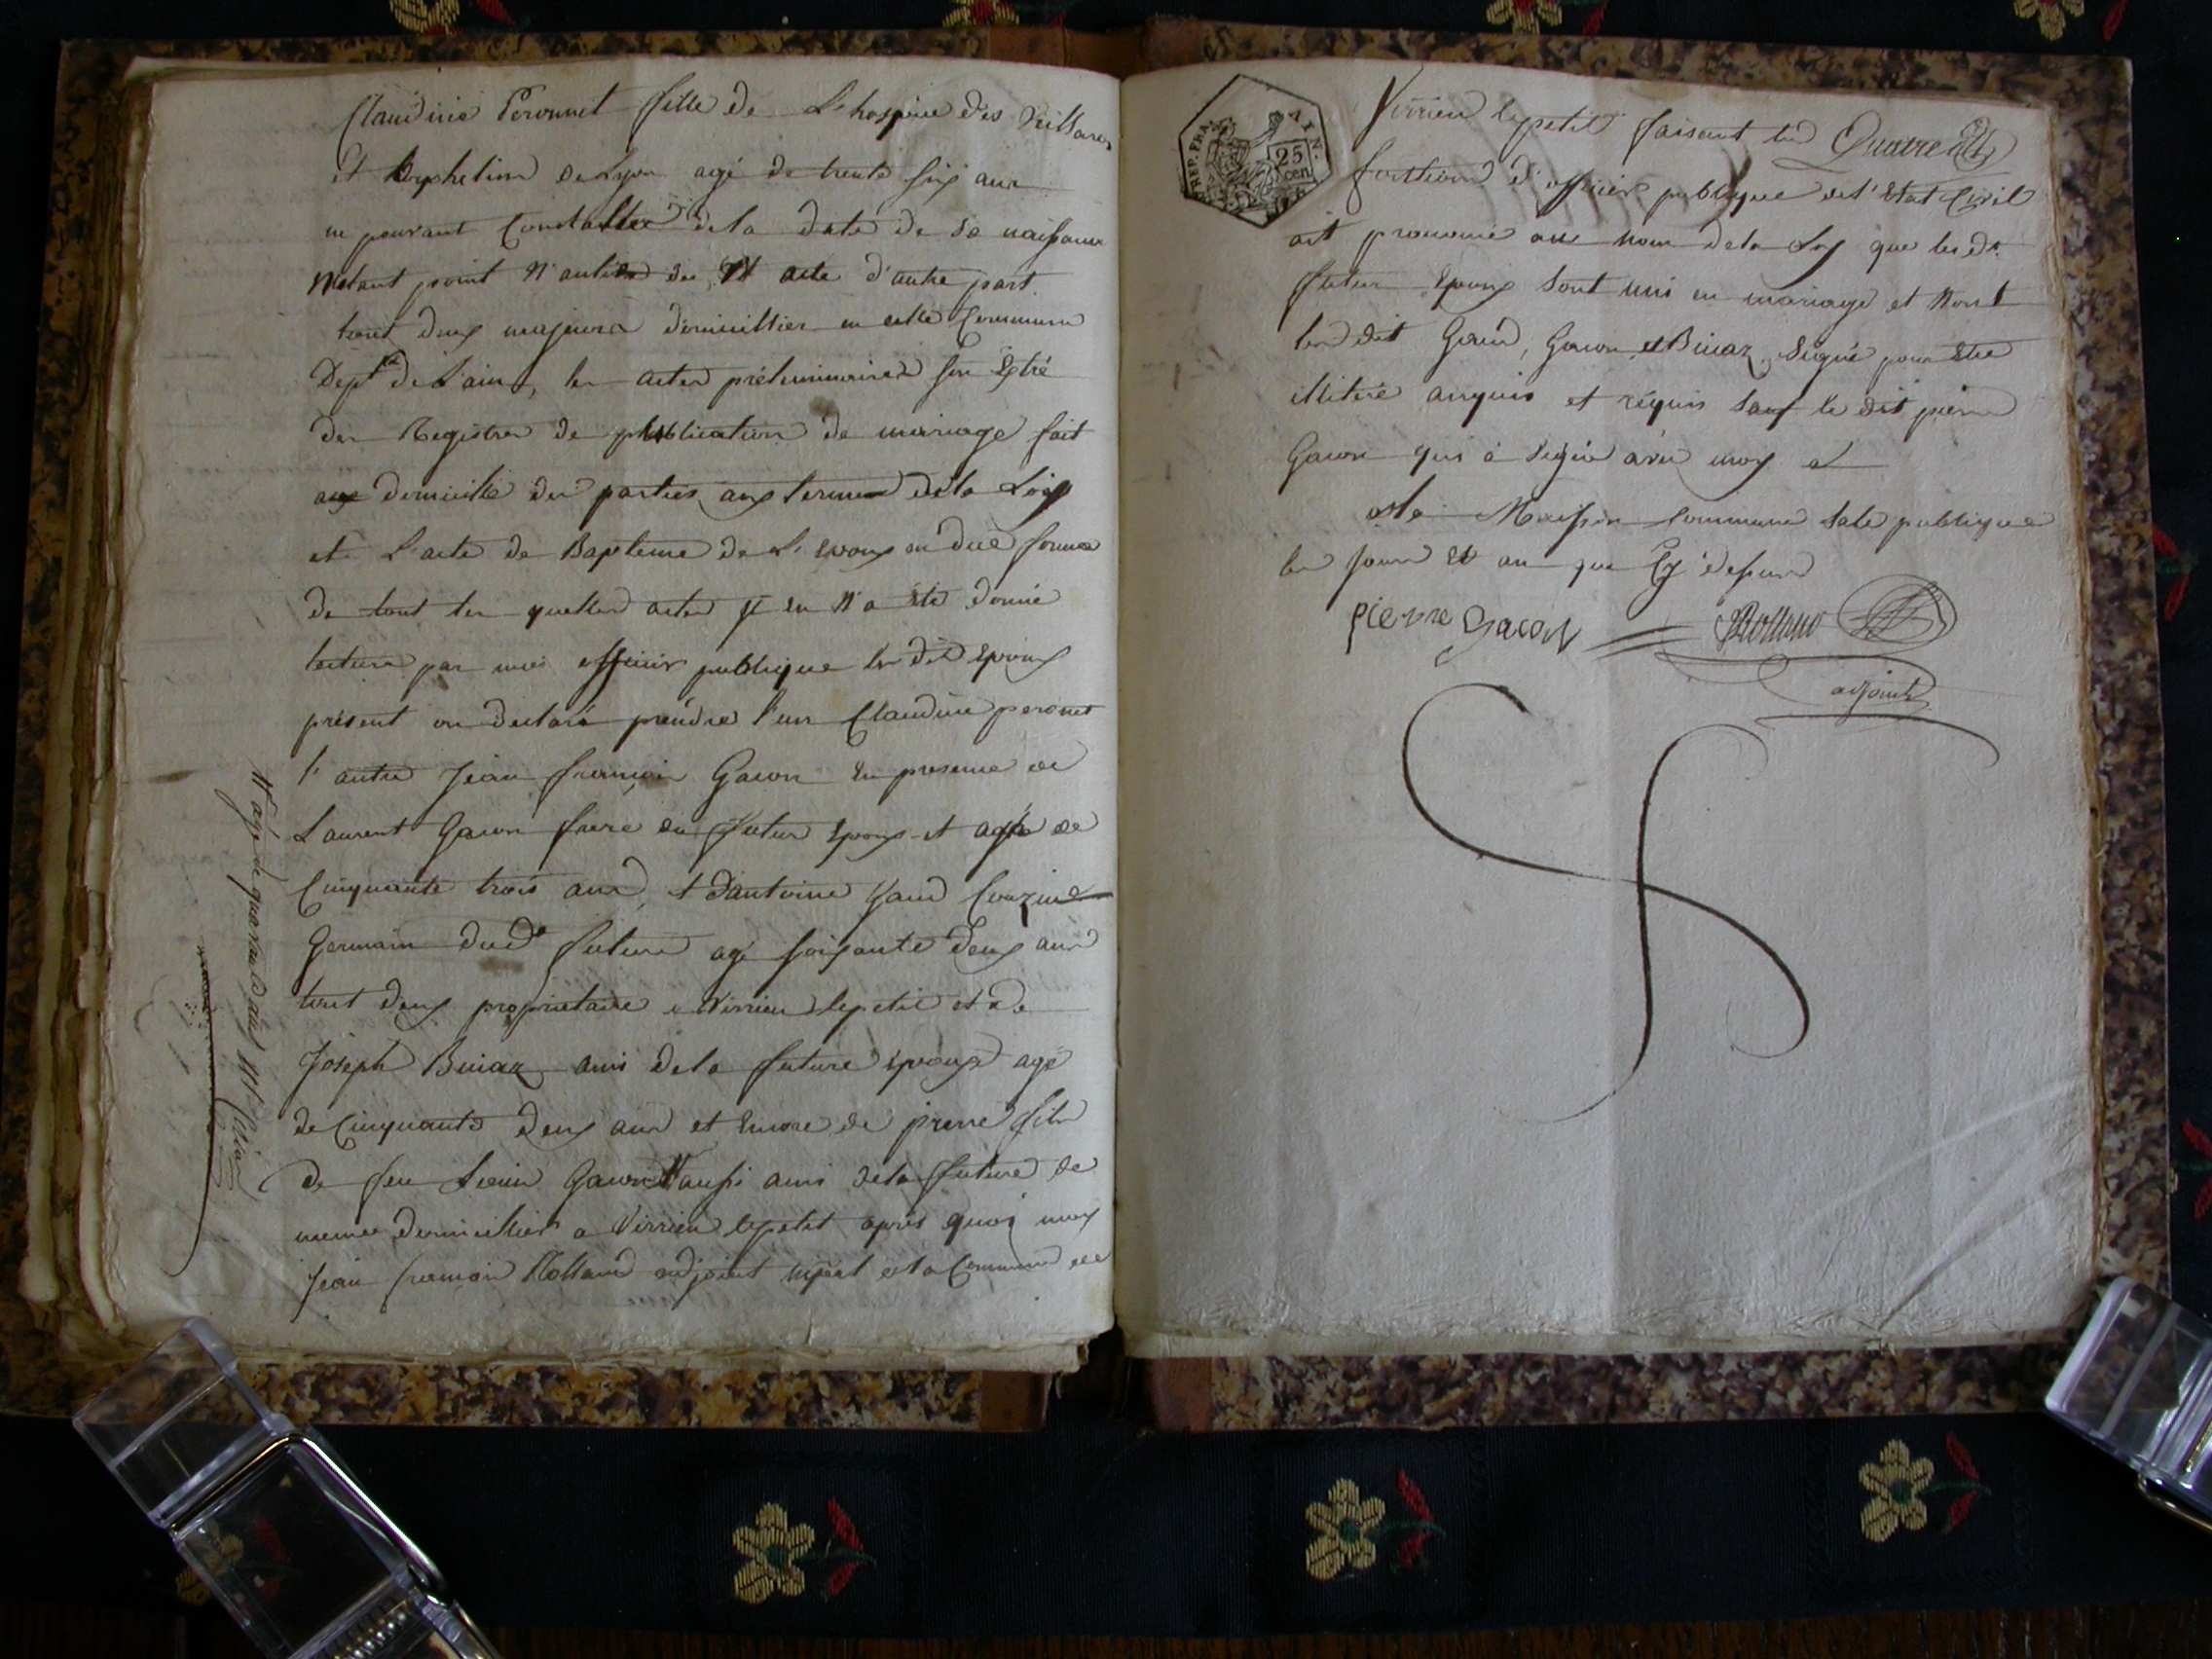 Claudine Peronnet fille de L'hospice des Vieillares
et Orphelins de Lyon agé de trente six ans
ne pouvant Constatter de la date de sa naissance
d'autre part
tout deux majeurs domicillier en cette Commune
Dept de L'ain, les actes préliminaires son Extré
des Registres de publication de mariage fait
aux domicille des parties aux termes de la Loÿ
et L'acte de Bapteme de L'Epoux en due forme
de tout les quelles actes il en N'a été donné
lecture par moi officier publique les dit Epoux
présent on declaré prendre l'un Claudine peronet
l'autre Jean françois Gacon En presence de
Laurent Gacon frere du futur Epoux et agée de
Cinquante trois ans, et d'antoine Couzins
Germain dud. future agé soixante deux ans
tout deux proprietaire a Virrieu lepetit et de
Joseph Buiaz amis de la future Epouse agé
de Cinquante deux ans et Encore de pierre fils
de feu Gacon aussi amis de la future de
meme domicillier a Virrieu lepetit après quoi moy
Jean francois Rolland adjoint de la Commune de
N agé de quarante
25
cen
REP. FRA.
AIN.
Virrieu lepetit faisant les
fonctions d'officier publique de l'Etat Civil
ait prononcé au nom de la Loy que les dt.
futur Epoux sont uni en mariage et Nont
les dit Gacon, et Buiaz Signé pour Etre
illitéré anquis et réquis sauf le dit pierre
Gacon qui à signé avec moy a
la Maison Commune Sale publique
les Jour Et an que Cy dessus
pierre gacon JRolland
adjoint